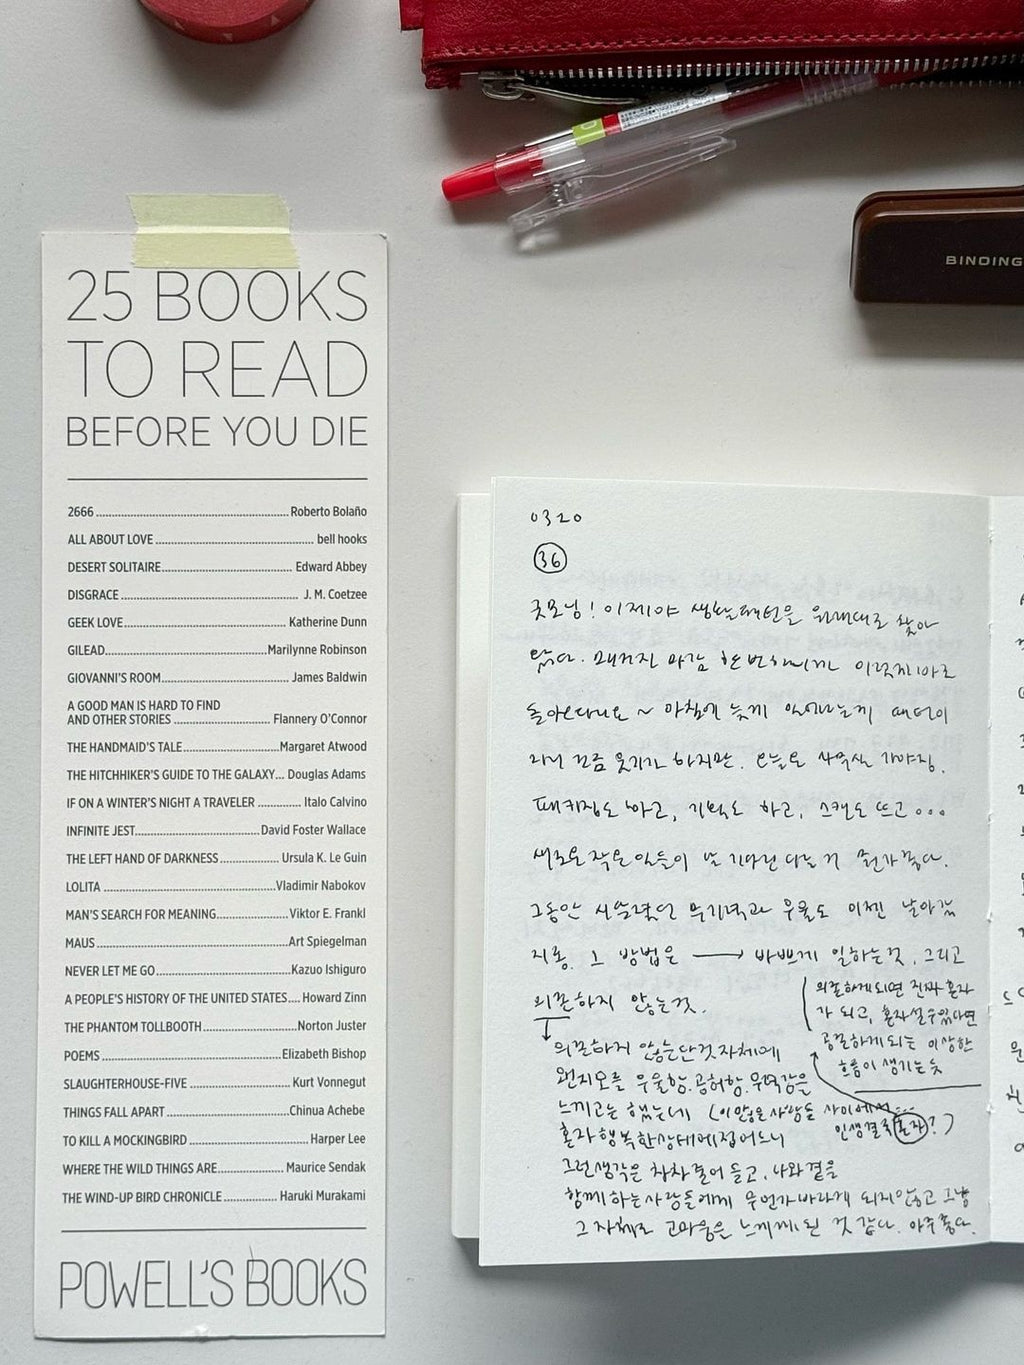 25 BOOKS
TO READ
BEFORE YOU DIE
2666 ........ Roberto Bolaño
ALL ABOUT LOVE ........ bell hooks
DESERT SOLITAIRE ........ Edward Abbey
DISGRACE ........ J. M. Coetzee
GEEK LOVE ........ Katherine Dunn
GILEAD ........ Marilynne Robinson
GIOVANNI'S ROOM ........ James Baldwin
A GOOD MAN IS HARD TO FIND
AND OTHER STORIES ........ Flannery O'Connor
THE HANDMAID'S TALE ........ Margaret Atwood
THE HITCHHIKER'S GUIDE TO THE GALAXY... Douglas Adams
IF ON A WINTER'S NIGHT A TRAVELER ........ Italo Calvino
INFINITE JEST ........ David Foster Wallace
THE LEFT HAND OF DARKNESS ........ Ursula K. Le Guin
LOLITA ........ Vladimir Nabokov
MAN'S SEARCH FOR MEANING ........ Viktor E. Frankl
MAUS ........ Art Spiegelman
NEVER LET ME GO ........ Kazuo Ishiguro
A PEOPLE'S HISTORY OF THE UNITED STATES.... Howard Zinn
THE PHANTOM TOLLBOOTH ........ Norton Juster
POEMS ........ Elizabeth Bishop
SLAUGHTERHOUSE-FIVE ........ Kurt Vonnegut
THINGS FALL APART ........ Chinua Achebe
TO KILL A MOCKINGBIRD ........ Harper Lee
WHERE THE WILD THINGS ARE ........ Maurice Sendak
THE WIND-UP BIRD CHRONICLE ........ Haruki Murakami
POWELL'S BOOKS
BINDING
0320
36
굿모닝! 이제야 생활패턴을 원래대로 찾아
돌아온다니요 ~ 아침에 늦게 일어나는게
웃기긴 하지만. 오늘은 사무실 가야징.
패키징도 하고, 기획도 하고, 스캔도 뜨고...
새로운 작은 일들이 난
그동안 시달렸던 무기력과 우울도 이젠 날아갔
지롱. 그 방법은 → 바쁘게 일하는 것. 그리고
의존하지 않는 것.
의존하게되면 진짜 혼자
가 되고, 혼자설수있다면
공존하게 되는 이상한
흐름이 생기는 듯
의존하지 않는단것 자체에
왠지모를 우울함. 공허함. 무력감을
느끼고는 했는데 (이 많은 사람들 사이에서...
인생결국 혼자?)
혼자 행복한상태에 접어드니
그런생각은 차차 줄어 들고, 나와 곁을
함께 하는 사람들에게 무언가 바라게 되지않고 그냥
그 자체로 고마움은 느끼게 된 것 같다. 아주좋다.